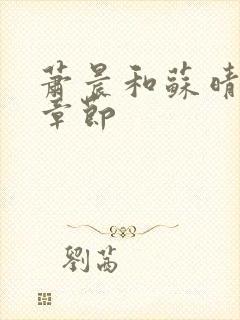 蕭晨和蘇晴
章節
劉茜